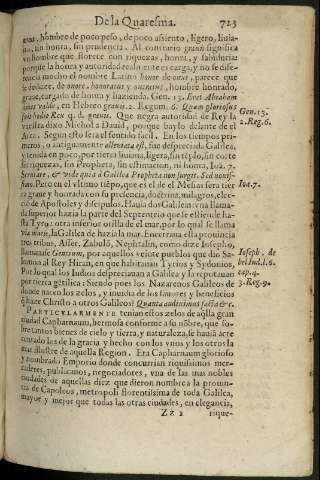 De la Quaresma. 723
uras, hombre de poco peso, de poco assiento, ligero, liuia-
no, sin honra, sin prudencia. Al contrario grauis significa
vn hombre que florece con riquezas, honra, y sabiduria:
porque la honra y autoridad es alsin ente carga, y no se dife-
rencia mucho el nombre Latino honor de onus, parece que
se deduze, de onore, honoratus y onustus, hombre honrado,
graue, cargado de honra y hazienda. Gen. 13. Erat Abraham
diues valde, en Hebreo grauis. 2. Regum. 6. Quam gloriosus
fuit hodie Rex q. d. grauis. Que negra autoridad de Rey la
vuestra dixo Michol a Dauid, porque baylo delante de el
Arca. Segun esto sera el sentido facil. En los tiempos pri-
meros, o antiguamente alleuiata est, fue despreciada Galilea,
y tenida en poco, por tierra liuiana, ligera, sin reposo, sin corte
sin riquezas, sin Propheta, sin estimacion, ni honra, Ioã. 7.
Scrutare, & vide quia à Galilea Propheta non surgit. Sed nouis-
simo. Pero en el vltimo tiẽpo, que es el de el Mesias sera tier
ra graue y honrada con su presencia, doctrina, milagros, elec-
ció de Apostoles y discipulos. Hauia dos Galileas: vna llama
da superior hazia la parte del Septentrió que se estiẽde ha-
sta Tyro: otra inferior orilla de el mar, por lo qual se llama
via maris, la Galilea de hazia la mar. Encerraua esta prouincia
tres tribus, Asser, Zabuló, Nephtalin, como dize Iosepho,
llamauase Gentium, por aquellos veinte pueblos que dio Sa-
lomon al Rey Hiran, en que habitauan Tyrios y Sydonios,
Por lo qual los Iudios despreciauan a Galilea y la reputauan
por tierra gẽtilica: Siendo pues los Nazarenos Galileos de
donde nacen los zelos, y murdia de los fauores y beneficios
q̃ haze Christo a otros Galileos? Quanta audiuimus facta &c.
PARTICVLARMENTE tenian estos zelos de aq̃lla gran
ciudad Capharnaum, hermosa conforme a su nõbre, que so-
bre tantos bienes de cielo y tierra, y naturaleza, se hauiã acre
centado los de la gracia y hecho con los vnos y los otros la
mas illustre de aquella Region. Era Capharnaum glorioso
y nombrado Emporio donde concurrian riquissimos mer-
caderes, publicanos, negociadores, vna de las mas nobles
ciudades de aquellas diez que dieron nombre a la prouin-
cia de Capoleos, metropoli florentissima de toda Galilea,
mayor y mejor que todas las otras ciudades, en elegancia,
Zz 2 rique-
Gen. 13.
2. Reg. 6.
Ioa. 7.
Ioseph. de
bel Iud. l. 6.
cap. 4.
3. Reg. 9.